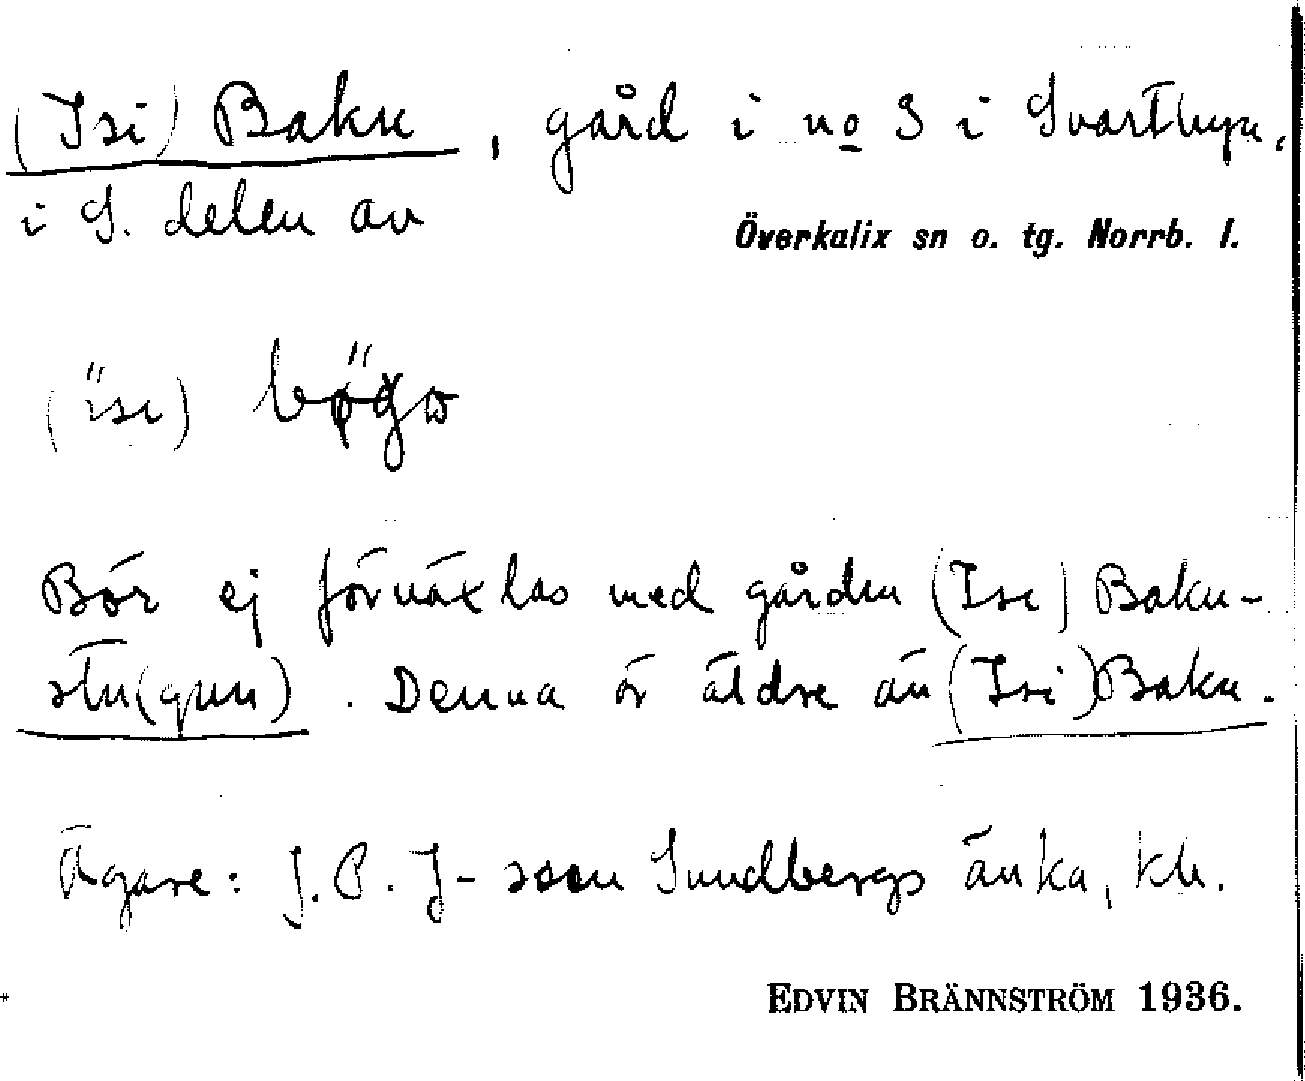 (Isi) Baku, gård i no 3 i Svartbyn,
i S. delen av
Överkalix sn o. tg. Norrb. l.
Bör ej förväxlas med gården (Isi) Baku-
stu(gun). Denna är äldre än (Isi) Baku.
Ägare: J. P. J-sson Sundbergs änka,
EDVIN BRÄNNSTRÖM 1936.